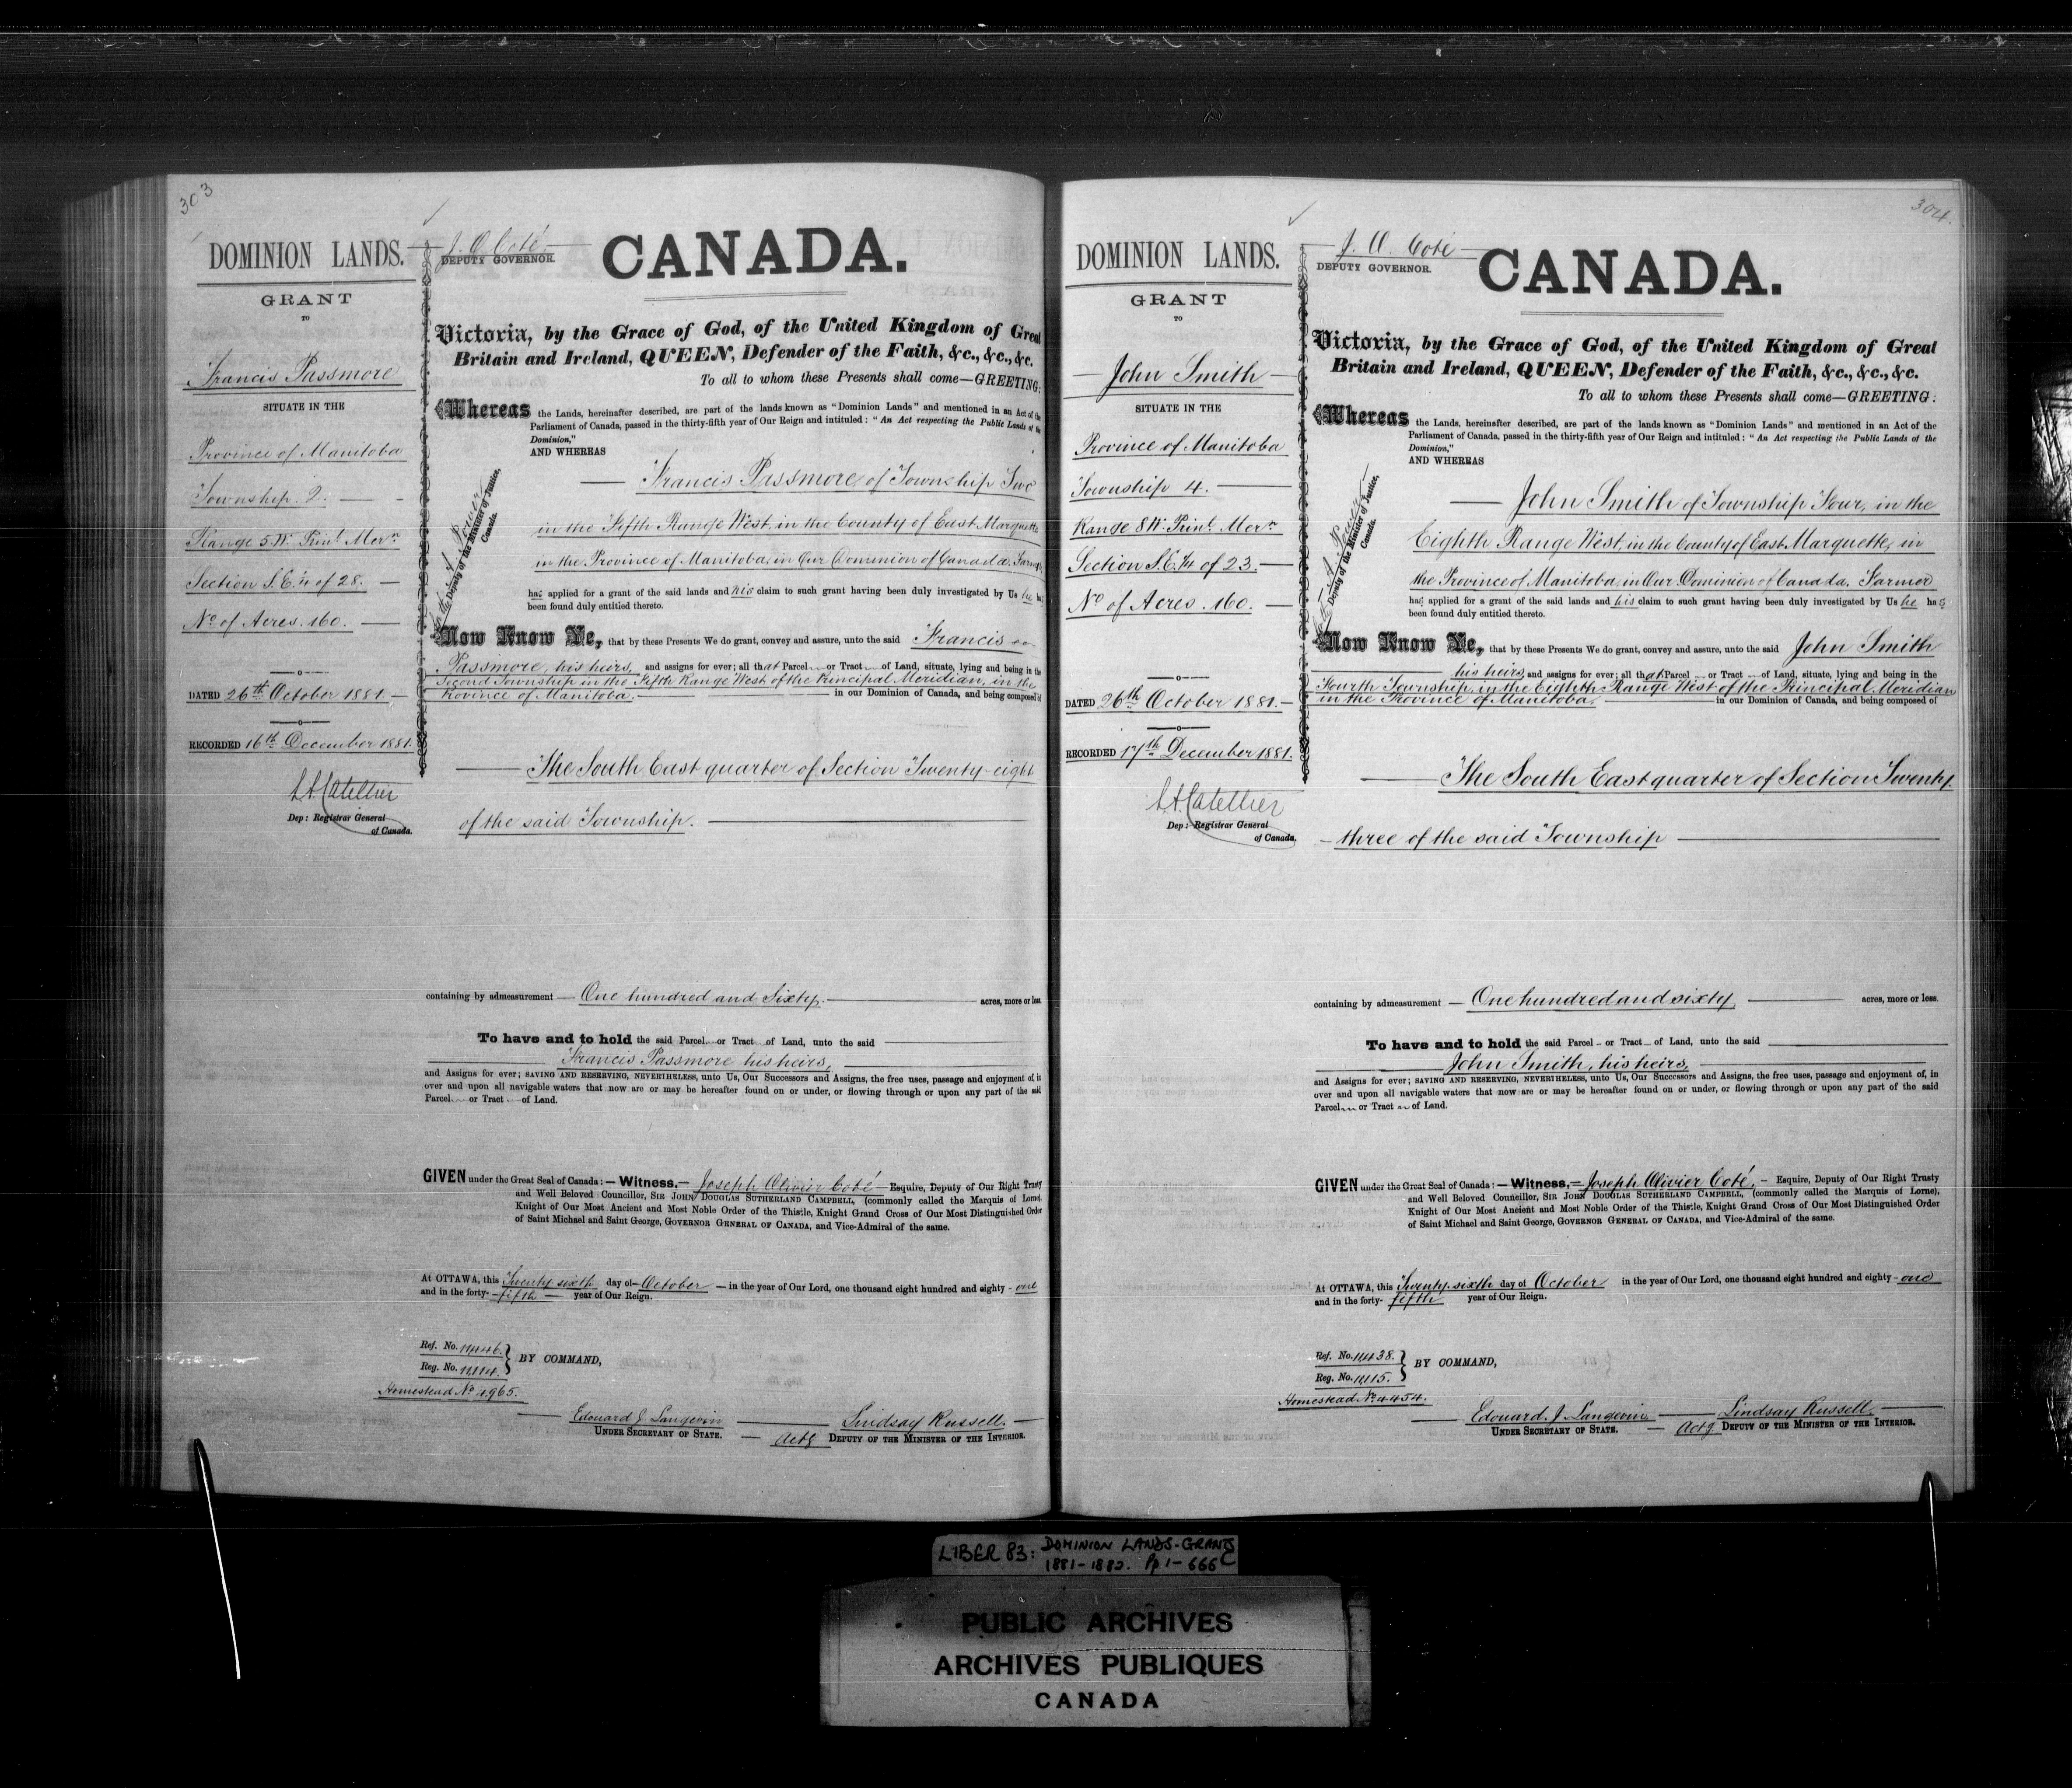 303
DOMINION LANDS.
GRANT
TO
Francis Passmore
SITUATE IN THE
Province of Manitoba
Township 2.
Range 5 W. Prinl. Mern
Section S.E. ¼ of 28.
No. of Acres. 160.
DATED 26th October 1881.
RECORDED 16th December 1881.
Dep: Registrar General
of Canada.
J. O. Coté
DEPUTY GOVERNOR.
CANADA.
Victoria, by the Grace of God, of the United Kingdom of Great
Britain and Ireland, QUEEN, Defender of the Faith, &c., &c., &c.
To all to whom these Presents shall come—GREETING:
Whereas the Lands, hereinafter described, are part of the lands known as "Dominion Lands" and mentioned in an Act of the
Parliament of Canada, passed in the thirty-fifth year of Our Reign and intituled: "An Act respecting the Public Lands of the
Dominion,"
AND WHEREAS
Francis Passmore of Township Two
in the Fifth Range West, in the County of East Marquette
in the Province of Manitoba, in Our Dominion of Canada. Farmer
has applied for a grant of the said lands and his claim to such grant having been duly investigated by Us he has
been found duly entitled thereto.
Deputy of the Minister of Justice,
Canada.
Now Know Ye, that by these Presents We do grant, convey and assure, unto the said Francis
Passmore, his heirs, and assigns for ever; all that Parcel or Tract of Land, situate, lying and being in the
Second Township in the Fifth Range West of the Principal Meridian, in the
Province of Manitoba. in our Dominion of Canada, and being composed of
The South East quarter of Section Twenty-eight
of the said Township.
containing by admeasurement One hundred and Sixty. acres, more or less.
To have and to hold the said Parcel or Tract of Land, unto the said
Francis Passmore his heirs,
and Assigns for ever; SAVING AND RESERVING, NEVERTHELESS, unto Us, Our Successors and Assigns, the free uses, passage and enjoyment of, in
over and upon all navigable waters that now are or may be hereafter found on or under, or flowing through or upon any part of the said
Parcel or Tract of Land.
GIVEN under the Great Seal of Canada:—Witness.— Joseph Olivier Coté Esquire, Deputy of Our Right Trusty
and Well Beloved Councillor, SIR JOHN DOUGLAS SUTHERLAND CAMPBELL, (commonly called the Marquis of Lorne),
Knight of Our Most Ancient and Most Noble Order of the Thistle, Knight Grand Cross of Our Most Distinguished Order
of Saint Michael and Saint George, GOVERNOR GENERAL OF CANADA, and Vice-Admiral of the same.
At OTTAWA, this Twenty sixth day of October in the year of Our Lord, one thousand eight hundred and eighty-one
and in the forty-fifth year of Our Reign.
Ref. No.
Reg. No.
BY COMMAND,
Homestead No. 1965.
Edouard J. Langevin
UNDER SECRETARY OF STATE.
Lindsay Russell.
Actg DEPUTY OF THE MINISTER OF THE INTERIOR.
304.
DOMINION LANDS.
GRANT
TO
John Smith
SITUATE IN THE
Province of Manitoba
Township 4.
Range 8 W. Prinl. Mern
Section S.E. ¼ of 23.
No. of Acres. 160.
DATED 26th October 1881.
RECORDED 17th December 1881.
Dep: Registrar General
of Canada.
J. O. Coté
DEPUTY GOVERNOR.
CANADA.
Victoria, by the Grace of God, of the United Kingdom of Great
Britain and Ireland, QUEEN, Defender of the Faith, &c., &c., &c.
To all to whom these Presents shall come—GREETING:
Whereas the Lands, hereinafter described, are part of the lands known as "Dominion Lands" and mentioned in an Act of the
Parliament of Canada, passed in the thirty-fifth year of Our Reign and intituled: "An Act respecting the Public Lands of the
Dominion,"
AND WHEREAS
John Smith of Township Four, in the
Eighth Range West, in the County of East Marquette, in
the Province of Manitoba, in Our Dominion of Canada, Farmer
has applied for a grant of the said lands and his claim to such grant having been duly investigated by Us he has
been found duly entitled thereto.
Deputy of the Minister of Justice,
Canada.
Now Know Ye, that by these Presents We do grant, convey and assure, unto the said John Smith
his heirs, and assigns for ever; all that Parcel or Tract of Land, situate, lying and being in the
Fourth Township, in the Eighth Range West of the Principal Meridian
in the Province of Manitoba, in our Dominion of Canada, and being composed of
The South East quarter of Section Twenty
three of the said Township
containing by admeasurement One hundred and sixty, acres, more or less.
To have and to hold the said Parcel or Tract of Land, unto the said
John Smith, his heirs,
and Assigns for ever; SAVING AND RESERVING, NEVERTHELESS, unto Us, Our Successors and Assigns, the free uses, passage and enjoyment of, in
over and upon all navigable waters that now are or may be hereafter found on or under, or flowing through or upon any part of the said
Parcel or Tract of Land.
GIVEN under the Great Seal of Canada:—Witness.— Joseph Olivier Coté, Esquire, Deputy of Our Right Trusty
and Well Beloved Councillor, SIR JOHN DOUGLAS SUTHERLAND CAMPBELL, (commonly called the Marquis of Lorne),
Knight of Our Most Ancient and Most Noble Order of the Thistle, Knight Grand Cross of Our Most Distinguished Order
of Saint Michael and Saint George, GOVERNOR GENERAL OF CANADA, and Vice-Admiral of the same.
At OTTAWA, this Twenty-sixth day of October in the year of Our Lord, one thousand eight hundred and eighty-one
and in the forty-fifth year of Our Reign.
Ref. No.
Reg. No.
BY COMMAND,
Homestead No. 4454.
Edouard. J. Langevin
UNDER SECRETARY OF STATE.
Lindsay Russell.
Actg. DEPUTY OF THE MINISTER OF THE INTERIOR.
LIBER 83: DOMINION LANDS-GRANTS
1881-1882. Pp 1-666
PUBLIC ARCHIVES
ARCHIVES PUBLIQUES
CANADA